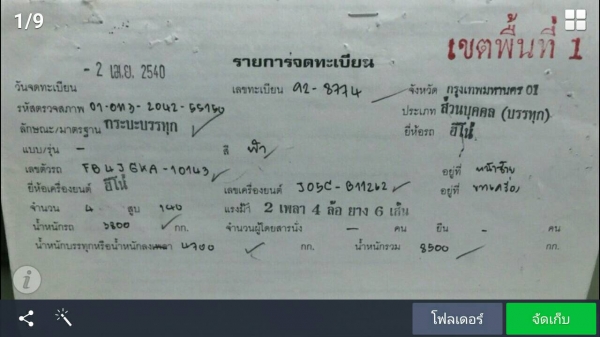 1/9
เขตพื้นที่ 1
รายการจดทะเบียน
วันจดทะเบียน - 2 เม.ย. 2540 เลขทะเบียน 92-8774 จังหวัด กรุงเทพมหานคร 01
รหัสตรวจสภาพ ประเภท ส่วนบุคคล (บรรทุก)
ลักษณะ/มาตรฐาน กระบะบรรทุก ยี่ห้อรถ ฮีโน่
แบบ/รุ่น - สี ฟ้า
เลขตัวรถ FB4JGKA-10143 อยู่ที่ หน้าซ้าย
ยี่ห้อเครื่องยนต์ ฮีโน่ เลขเครื่องยนต์ J05C-B11262 อยู่ที่
จำนวน 4 สูบ 140 แรงม้า 2 เพลา 4 ล้อ ยาง 6 เส้น
น้ำหนักรถ 3800 กก. จำนวนผู้โดยสารนั่ง - คน ยืน - คน
น้ำหนักบรรทุกหรือน้ำหนักลงเพลา 4700 กก. น้ำหนักรวม 8500 กก.
โฟลเดอร์
จัดเก็บ